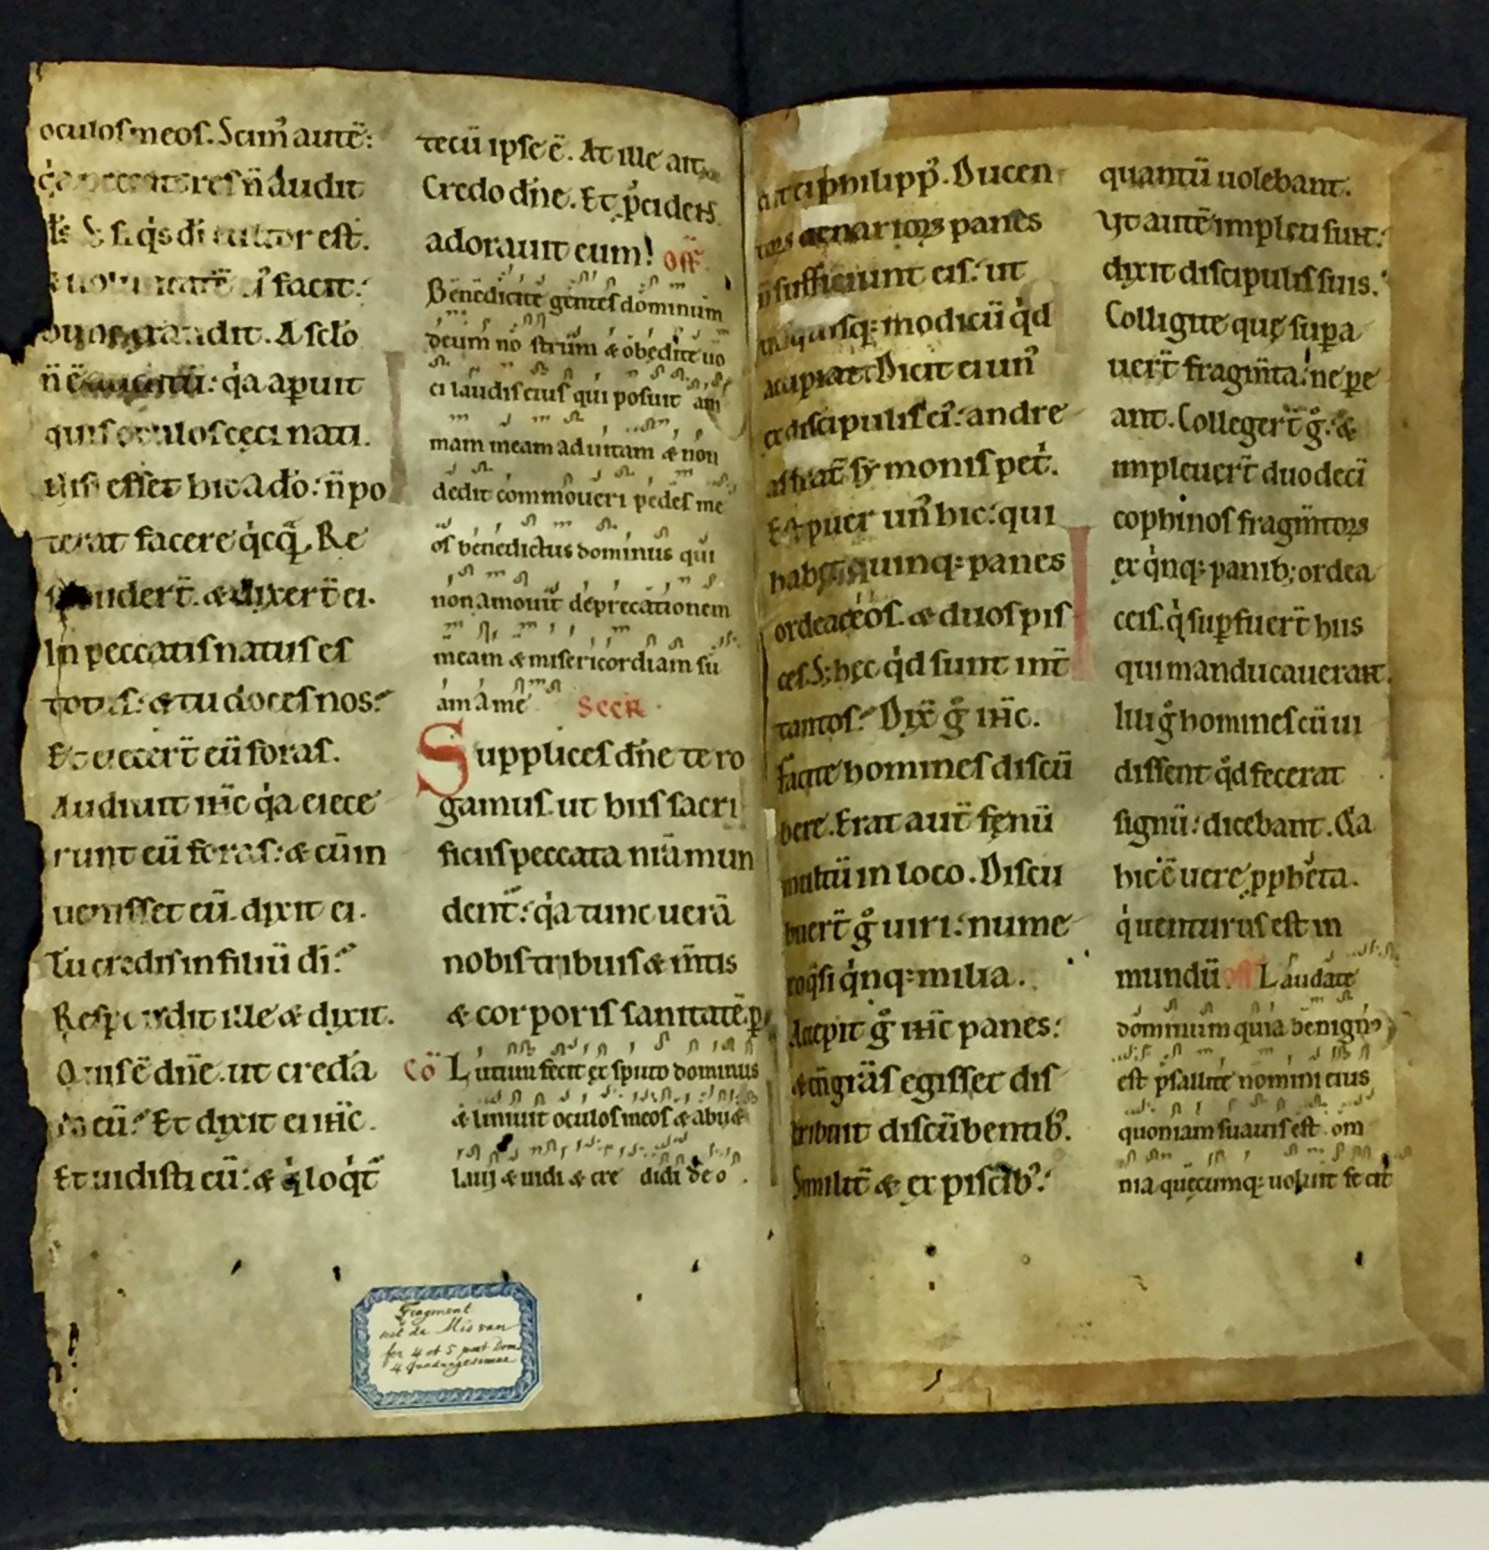 oculos meos. Scim᷒ autē:
q̇a peccatores n̄ audit
d̄s. S; siq̇s di cultor est.
& uoluntatē ei᷒ facit:
hunc exaudit. A sclo
n̄ ē auditū: q̇a aꝑuit
quis oculos cęci nati.
Nisi esset hic a dō: n̄ po
terat facere q̇cq̄. Re
sponder̄t. & dixer̄t ei.
In peccatis natus es
totus: & tu doces nos?
Et eiecer̄t eū foras.
Audiuit ih̄c q̇a eiece
runt eū foras: & cū in
uenisset eū. dixit ei.
Tu credis in filiū di?
Respondit ille & dixit.
Quis ē dn̄e. ut credā
in eū? Et dixit ei ih̄c.
Et uidisti eū: & q̇ loq̇t̄
tecū ipse ē. At ille ait.
Credo dn̄e. Et p̊cidens
adorauit eum! off̄.
Benedicite gentes dominum
deum no strum & obedite uo
ci laudis eius qui posuit ani
mam meam ad uitam & non
dedit commoueri pedes me
os benedictus dominus qui
non amouit deprecationem
meam & misericordiam su
am a me SECR.
Supplices dn̄e te ro
gamus. ut hiis sacri
ficiis peccata nr̄a mun
dent̄: q̇a tunc uerā
nobis tribuis & m̄tis
& corporis sanitatē. ꝑ
Cō Lutum fecit ex sputo dominus
& liniuit oculos meos & abii &
laui & uidi & cre didi de o .
dit ei philipp᷒. Ducen
torꝝ denariorꝝ panes
n̄ sufficiunt eis: ut
unusq;sq; modicū q̇d
accipiat. Dicit ei un᷒
ex discipulis ei᷒: andre
as frat̄ symonis pet̊.
Est puer un᷒ hic: qui
habet quinq; panes
ordeaceos. & duos pis
ces. S; hęc q̇d sunt int̄
tantos? Dix̄ g̊ ih̄c.
facite homines discū
bere. Erat aut̄ fęnū
multū in loco. Discu
buer̄t g̊ uiri: nume
ro q̇si q̇nq; milia.
Accepit g̊ ih̄c panes:
& cū gr̄as egisset dis
tribuit discūbentib᷒.
Similit̄ & ex piscib᷒:
quantū uolebant.
Vt autē impleti sunt:
dixit discipulis suis.
Colligite quę suꝑa
uer̄t fragm̄ta: ne ꝑe
ant. Colleger̄t g̊: &
impleuer̄t duodeci
cophinos fragm̄torꝝ
ex q̇nq; panib; ordea
ceis. q̇ suꝑfuer̄t hiis
qui manducauerant.
Illi g̊ homines cū ui
dissent q̇d fecerat
signū: dicebant. Q̇a
hic ē uere ꝓpheta.
q̇ uenturus est in
mundū. off̄ Laudate
dominum quia benignus
est psallite nomini eius
quoniam suauis est om
nia quęcumq; uoluit fecit
Fragment
uit de Mis van
fer 4 et 5 post Dom
4 Quadragesimae